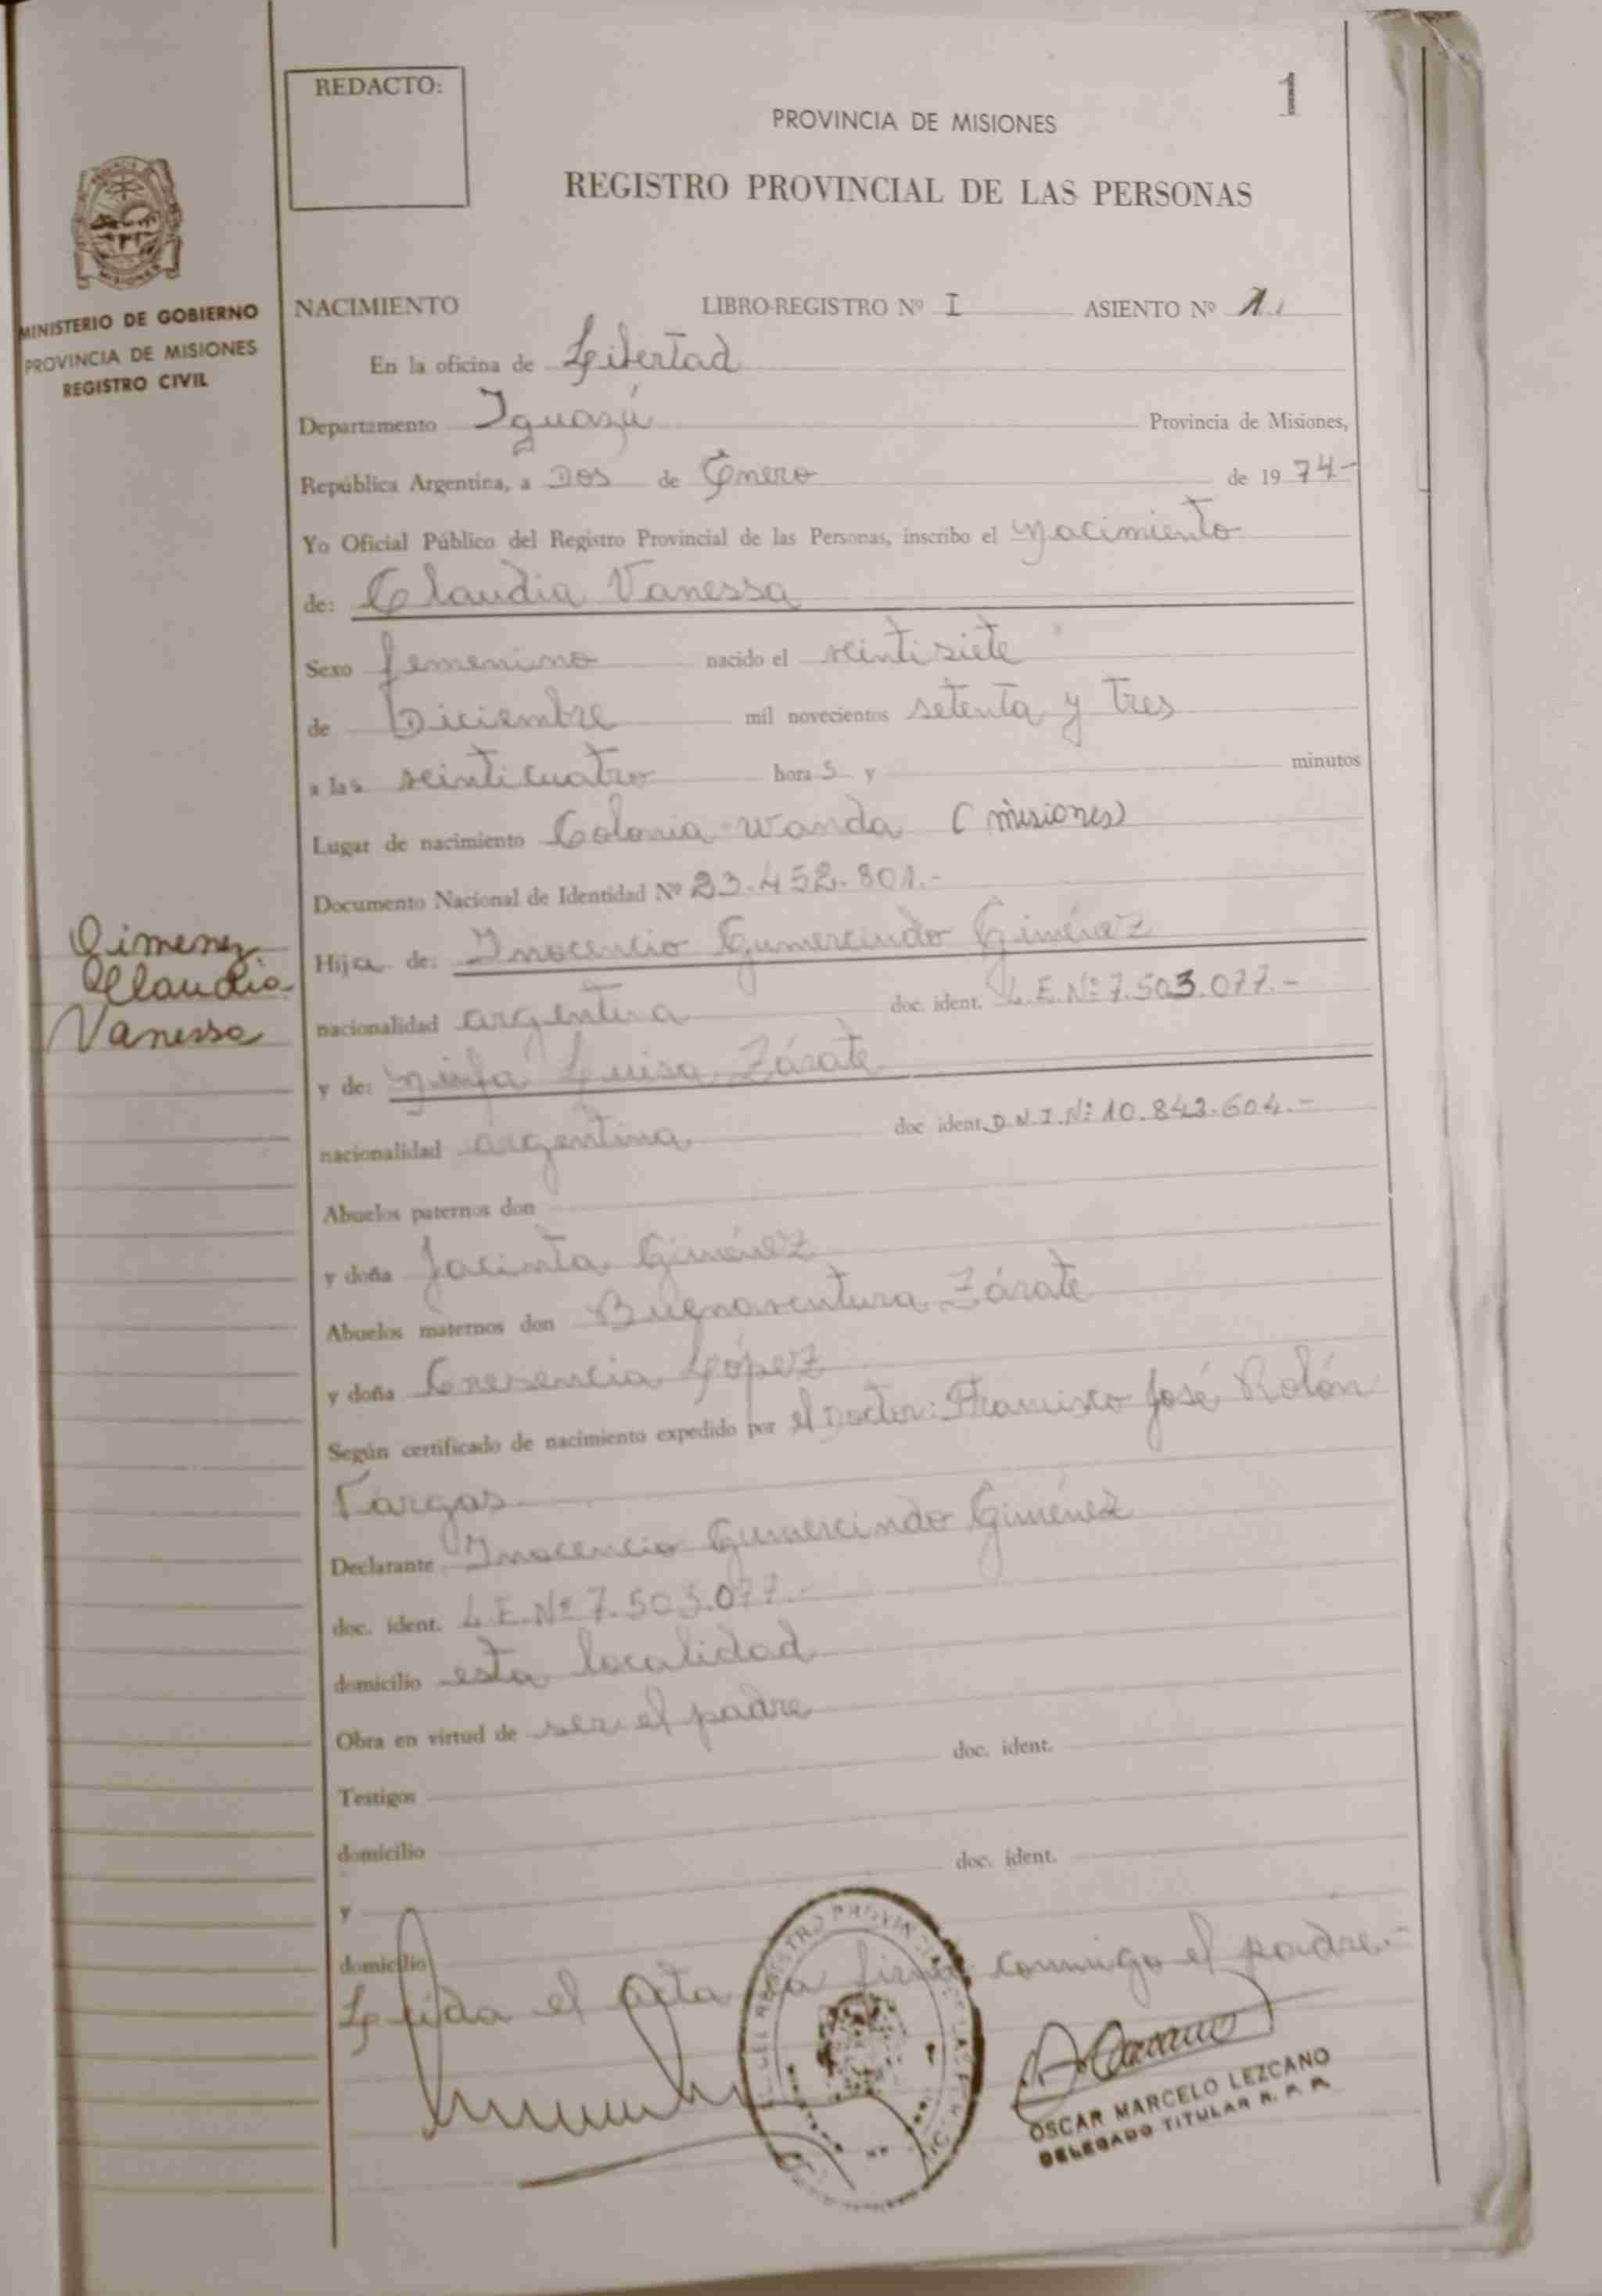 REDACTO:
1
PROVINCIA DE MISIONES
REGISTRO PROVINCIAL DE LAS PERSONAS
MINISTERIO DE GOBIERNO
PROVINCIA DE MISIONES
REGISTRO CIVIL
NACIMIENTO LIBRO-REGISTRO Nº I ASIENTO Nº 1
En la oficina de Libertad
Departamento Iguazú Provincia de Misiones,
República Argentina, a Dos de Enero de 1974-
Yo Oficial Público del Registro Provincial de las Personas, inscribo el Nacimiento
de: Claudia Vanessa
Sexo femenino nacido el veintisiete
de Diciembre mil novecientos setenta y tres
a las veinticuatro hora s y minutos
Lugar de nacimiento Colonia Wanda (Misiones)
Documento Nacional de Identidad Nº 23.452.801.-
Gimenez
Claudia
Vanessa
Hija de: Inocencio Gumercindo Giménez
nacionalidad argentina doc. ident. L.E.Nº 7.503.077.-
y de: Ninfa Luisa Zárate
nacionalidad argentina doc ident. D.N.I.Nº 10.842.604.-
Abuelos paternos don
y doña Jacinta Giménez
Abuelos maternos don Buenaventura Zárate
y doña Cresencia López
Según certificado de nacimiento expedido por el Doctor: Francisco José Rolón
Vargas
Declarante Inocencio Gumercindo Giménez
doc. ident. L.E.Nº 7.503.077.-
domicilio esta localidad
Obra en virtud de ser el padre
doc. ident.
Testigos
domicilio
doc. ident.
y
domicilio
Leida el acta la firma conmigo el padre.-
OSCAR MARCELO LEZCANO
DELEGADO TITULAR R. P. P.